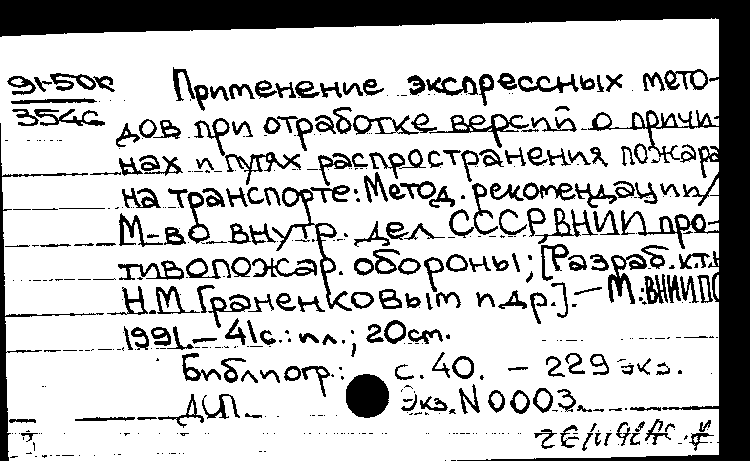 91-50к
354с
Применение экспрессных мето-
дов при отработке версий о причи-
нах и путях распространения пожара
на транспорте: Метод. рекомендации/
М-во внутр. дел СССР, ВНИИ про-
тивопожар. обороны; [Разраб. к.т.н
Н.М. Граненковым и др.]. – М.: ВНИИПО
1991. – 41с.: ил.; 20см.
Библиогр.: с. 40. – 229 экз.
ДСП. Экз. N 0003.